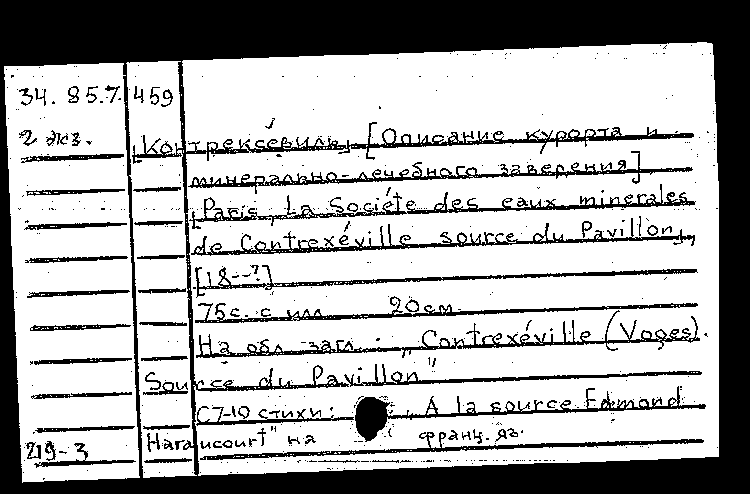 34. 85.7. 459
2 экз. „Контрексевиль„ [Описание курорта и
минерально-лечебного заведения]
„Paris, La Sociéte des eaux minerales
de Contrexéville source du Pavillon„,
[18--?]
75с. с илл 20см.
На обл. загл. : „Contrexéville (Voges).
Source du Pavillon"
С7-10 стихи: „A la source Edmond
219-3 Haraucourt" на франц. яз.